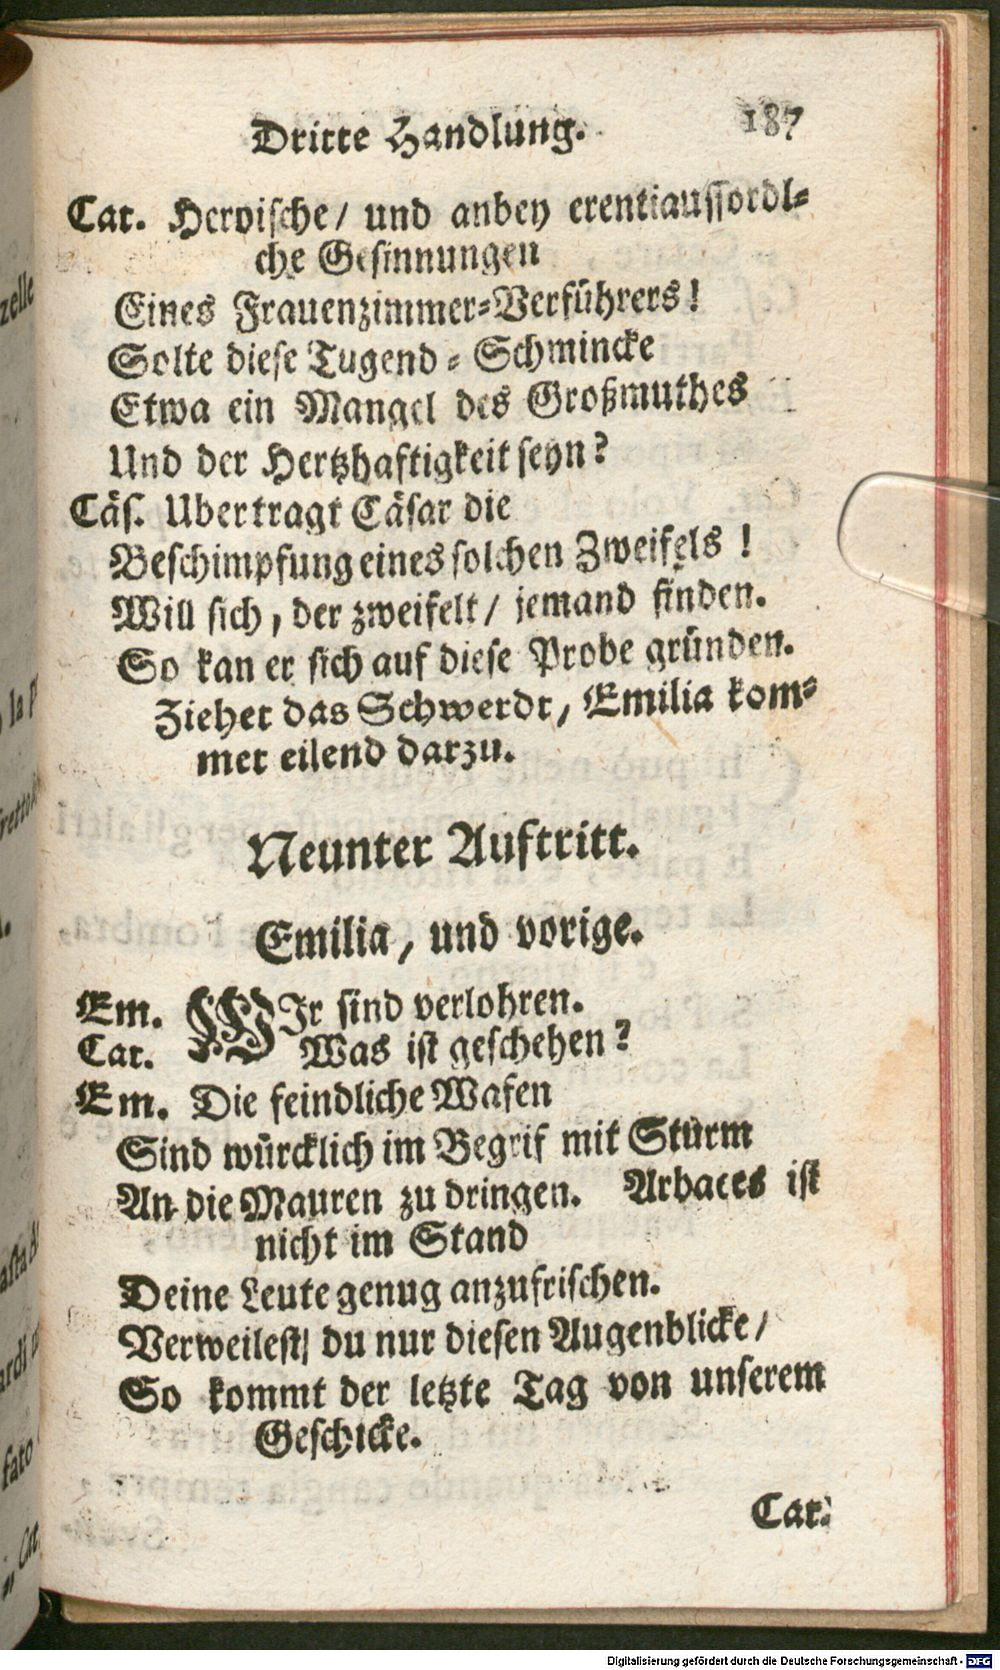 Dritte Handlung. 187
Cat. Heroische/ und anbey erentiaussordl-
che Gesinnungen
Eines Frauenzimmer-Verführers!
Solte diese Tugend - Schmincke
Etwa ein Mangel des Großmuthes
Und der Hertzhaftigkeit seyn?
Cäs. Ubertragt Cäsar die
Beschimpfung eines solchen Zweifels !
Will sich, der zweifelt/ jemand finden.
So kan er sich auf diese Probe gründen.
Ziehet das Schwerdt, Emilia kom-
met eilend darzu.
Neunter Auftritt.
Emilia, und vorige.
Em. WIr sind verlohren.
Cat. Was ist geschehen?
Em. Die feindliche Wafen
Sind würcklich im Begrif mit Sturm
An die Mauren zu dringen. Arbaces ist
nicht im Stand
Deine Leute genug anzufrischen.
Verweilest/ du nur diesen Augenblicke/
So kommt der letzte Tag von unserem
Geschicke.
Cat.
zelle
la P
fretto
asta
ardi
fato
Cat.
Digitalisierung gefördert durch die Deutsche Forschungsgemeinschaft - DFG